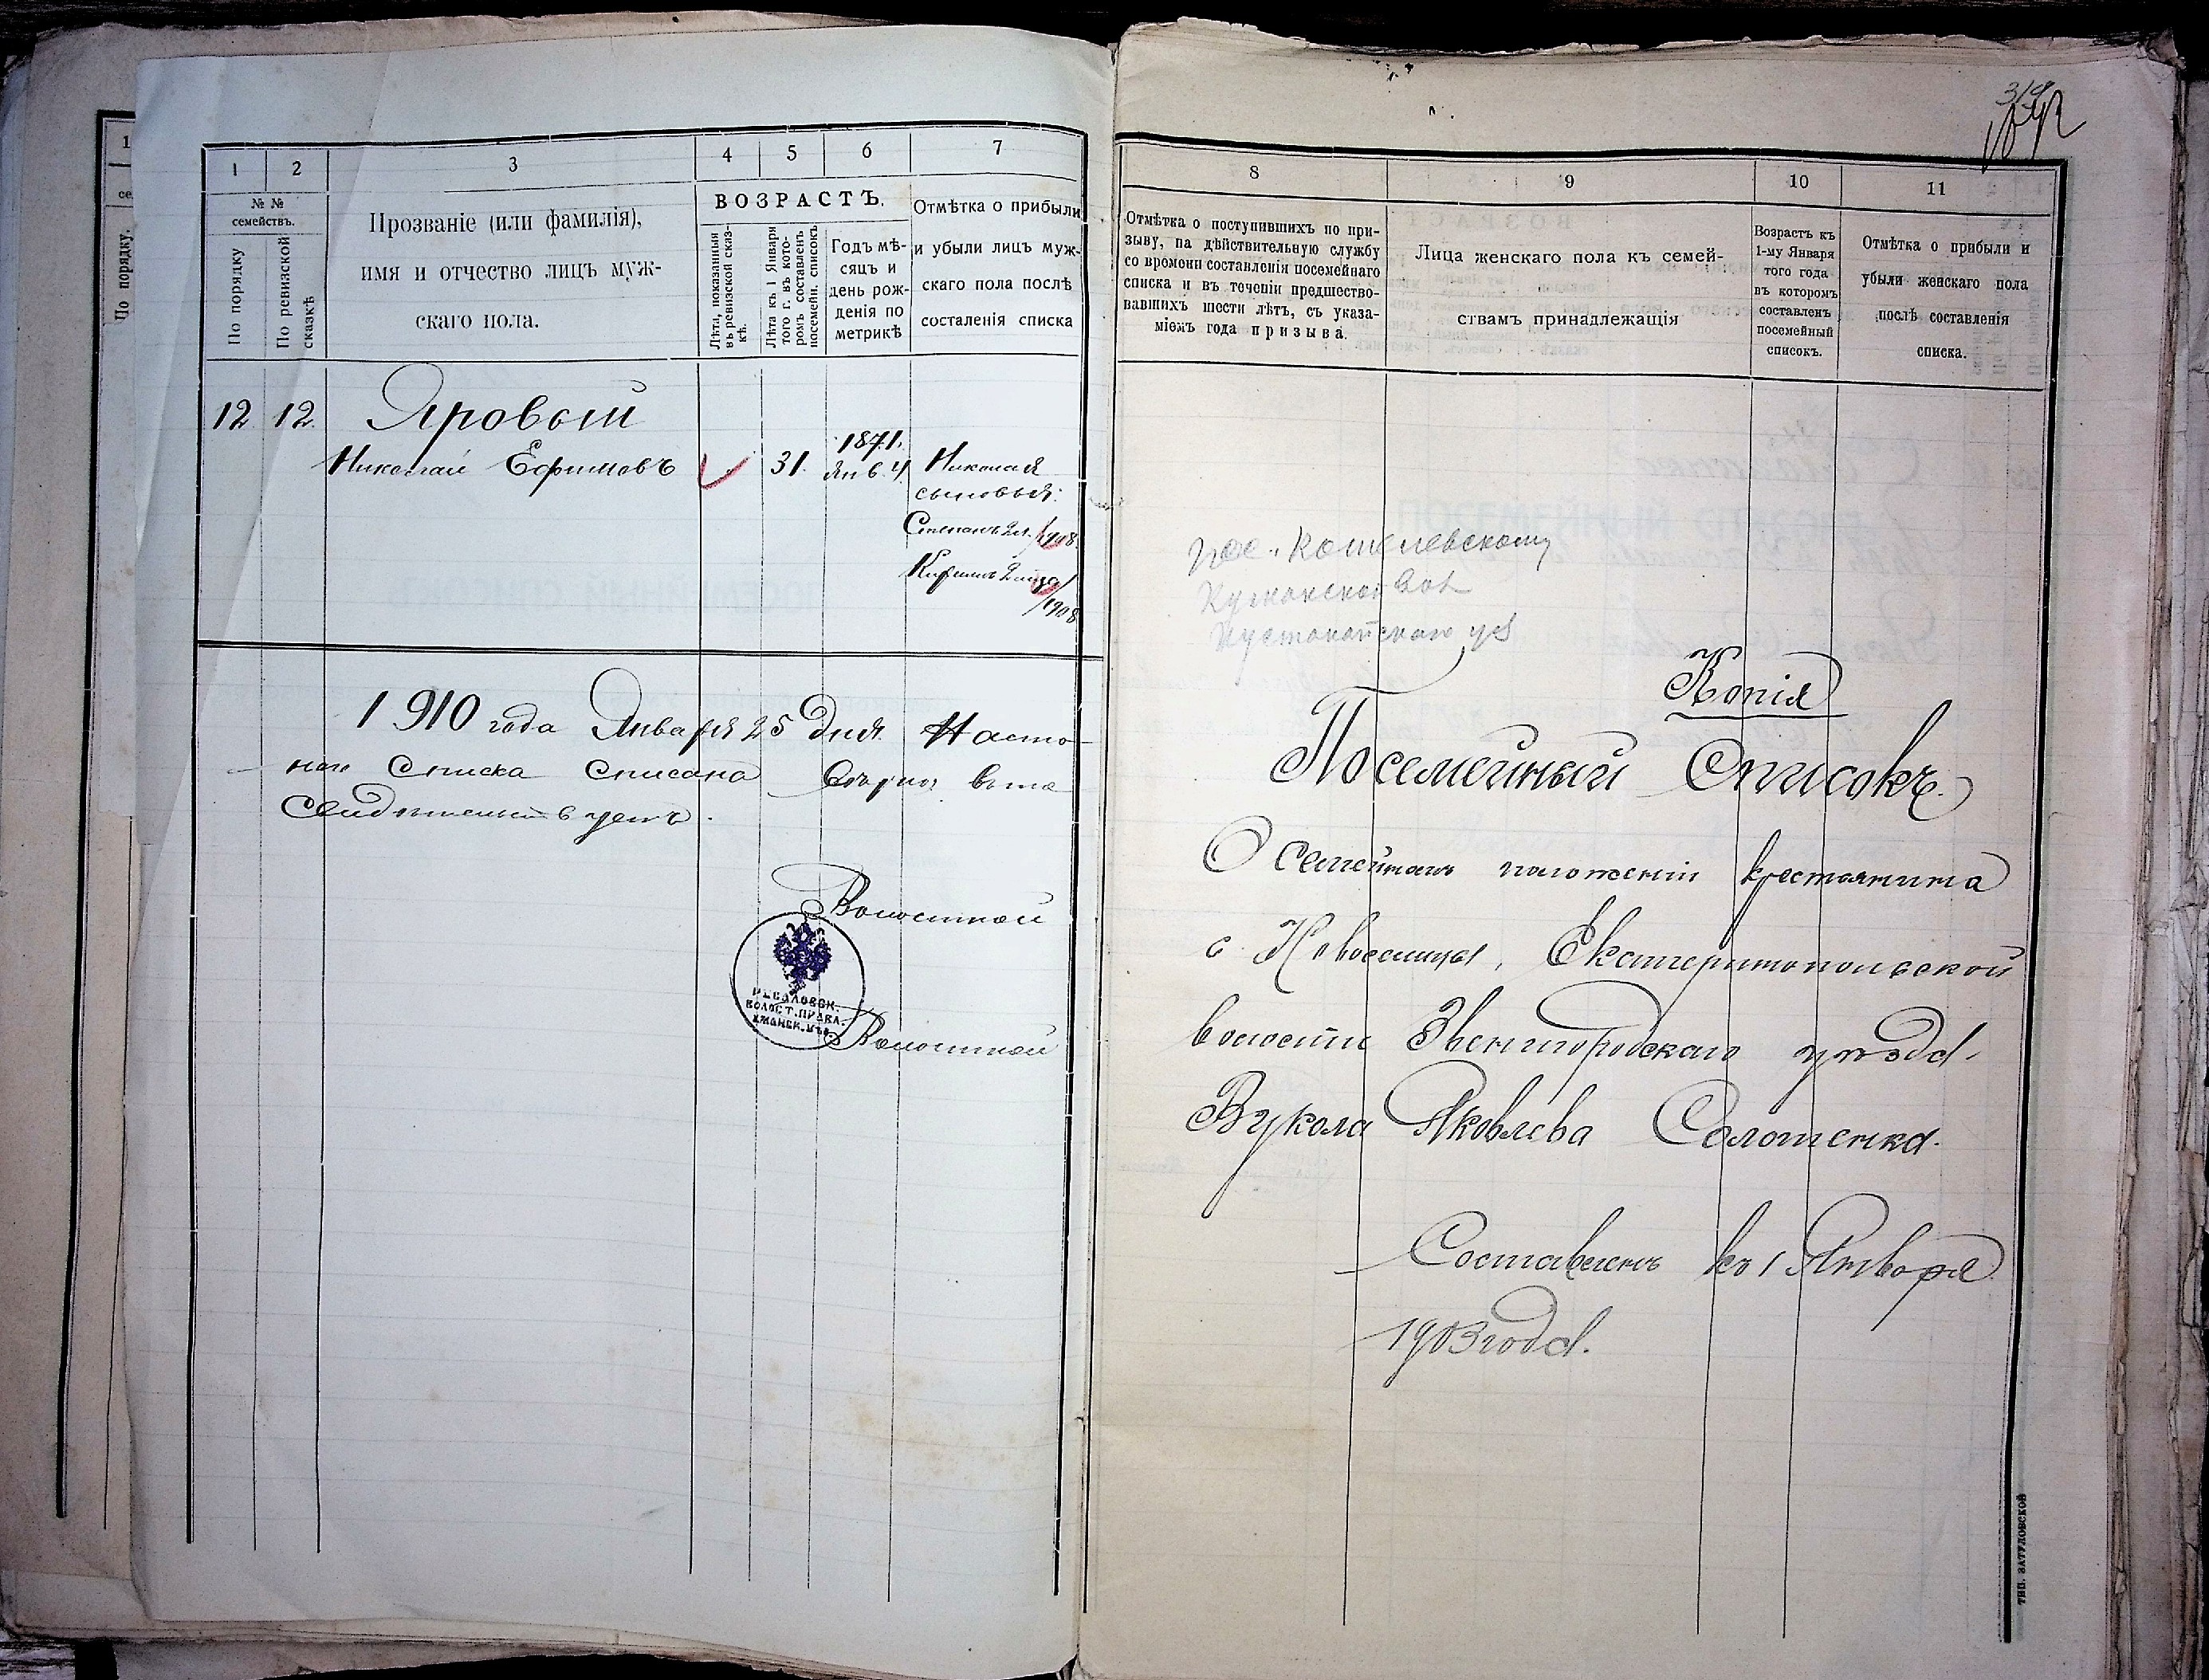 1
се
По порядку.
1 2 3 4 5 6 7
№ №
семействъ.
По порядку
По ревизской
сказкѣ
Прозваніе (или фамилія),
имя и отчество лицъ муж-
скаго пола.
ВОЗРАСТЪ.
Лѣта, показанныя
въ ревизской сказ-
кѣ.
Лѣта къ 1 Января
того г. въ кото-
ромъ составленъ
посемейн. списокъ
Годъ мѣ-
сяцъ и
день рож-
денія по
метрикѣ
Отмѣтка о прибыли
и убыли лицъ муж-
скаго пола послѣ
состаленія списка
12 12. Яровый
Николай Ефимовъ 31. 1871.
Янв. 4
Николая
сыновья:
Степанъ 2л. /1908.
/1908
1910 года Января 25 дня. Насто-
Списка Списана
Волостной
ВОЛОСТ. ПРАВЛ.
Волостной
319
8 9 10 11
Отмѣтка о поступившихъ по при-
зыву, на дѣйствительную службу
со времени составленія посемейнаго
списка и въ теченіи предшество-
вавшихъ шести лѣтъ, съ указа-
ніемъ года призыва.
Лица женскаго пола къ семей-
ствамъ принадлежащія
Возрастъ къ
1-му Января
того года
въ которомъ
составленъ
посемейный
списокъ.
Отмѣтка о прибыли и
убыли женскаго пола
послѣ составленія
списка.
Копія
Посемейный Списокъ.
О Семейномъ положеніи крестьянина
с. Новоселицы, Екатеринопольской
волости Звенигородскаго уѣзда.
Вукола Яковлева Солошенка.
Составленъ къ 1 Января
1903 года.
ТИП. ЗАТУЛОВСКОЙ